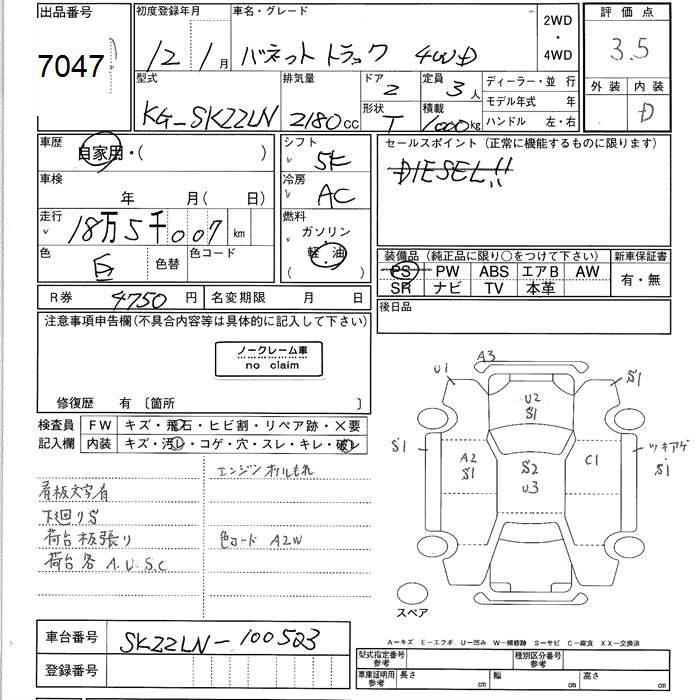 出品番号 初度登録年月 車名・グレード 2WD・4WD 評価点
7047 12年 1月 バネット トラック 4WD 3.5
型式 排気量 ドア 定員 ディーラー・並行 外装 内装
KG-SK22LN 2180cc 2 3人 モデル年式 年 D
形状 積載 ハンドル 左・右
T 1000kg
車歴 自家用・( ) シフト 5F セールスポイント (正常に機能するものに限ります)
DIESEL!!
車検 年 月( 日) 冷房 AC
走行 18万5千007km 燃料 ガソリン
軽・油
色 白 色替 色コード
装備品 (純正品に限り○をつけて下さい) 新車保証書
PS PW ABS エアB AW 有・無
SR ナビ TV 本革
R券 4750円 名変期限 月 日 後日品
注意事項申告欄(不具合内容等は具体的に記入して下さい)
ノークレーム車
no claim
修復歴 有 〔箇所 〕
検査員 FW キズ・飛石・ヒビ割・リペア跡・×要
記入欄 内装 キズ・汚レ・コゲ・穴・スレ・キレ・破レ
エンジンオイルもれ
看板文字有
下廻りS
荷台板張り 色コード A2W
荷台各 A.U.S.C
A3
U1 S1
U2
S1
S1 A2 S2 C1 ツキアゲ
S1 U3 S1
スペア
車台番号 SK22LN-100503
登録番号
A-キズ E-エクボ U-凹み W-補修跡 S-サビ C-腐食 XX-交換済
型式指定番号 参考 種別区分番号 参考
車庫証明用 参考 長さ cm 幅 cm 高さ cm